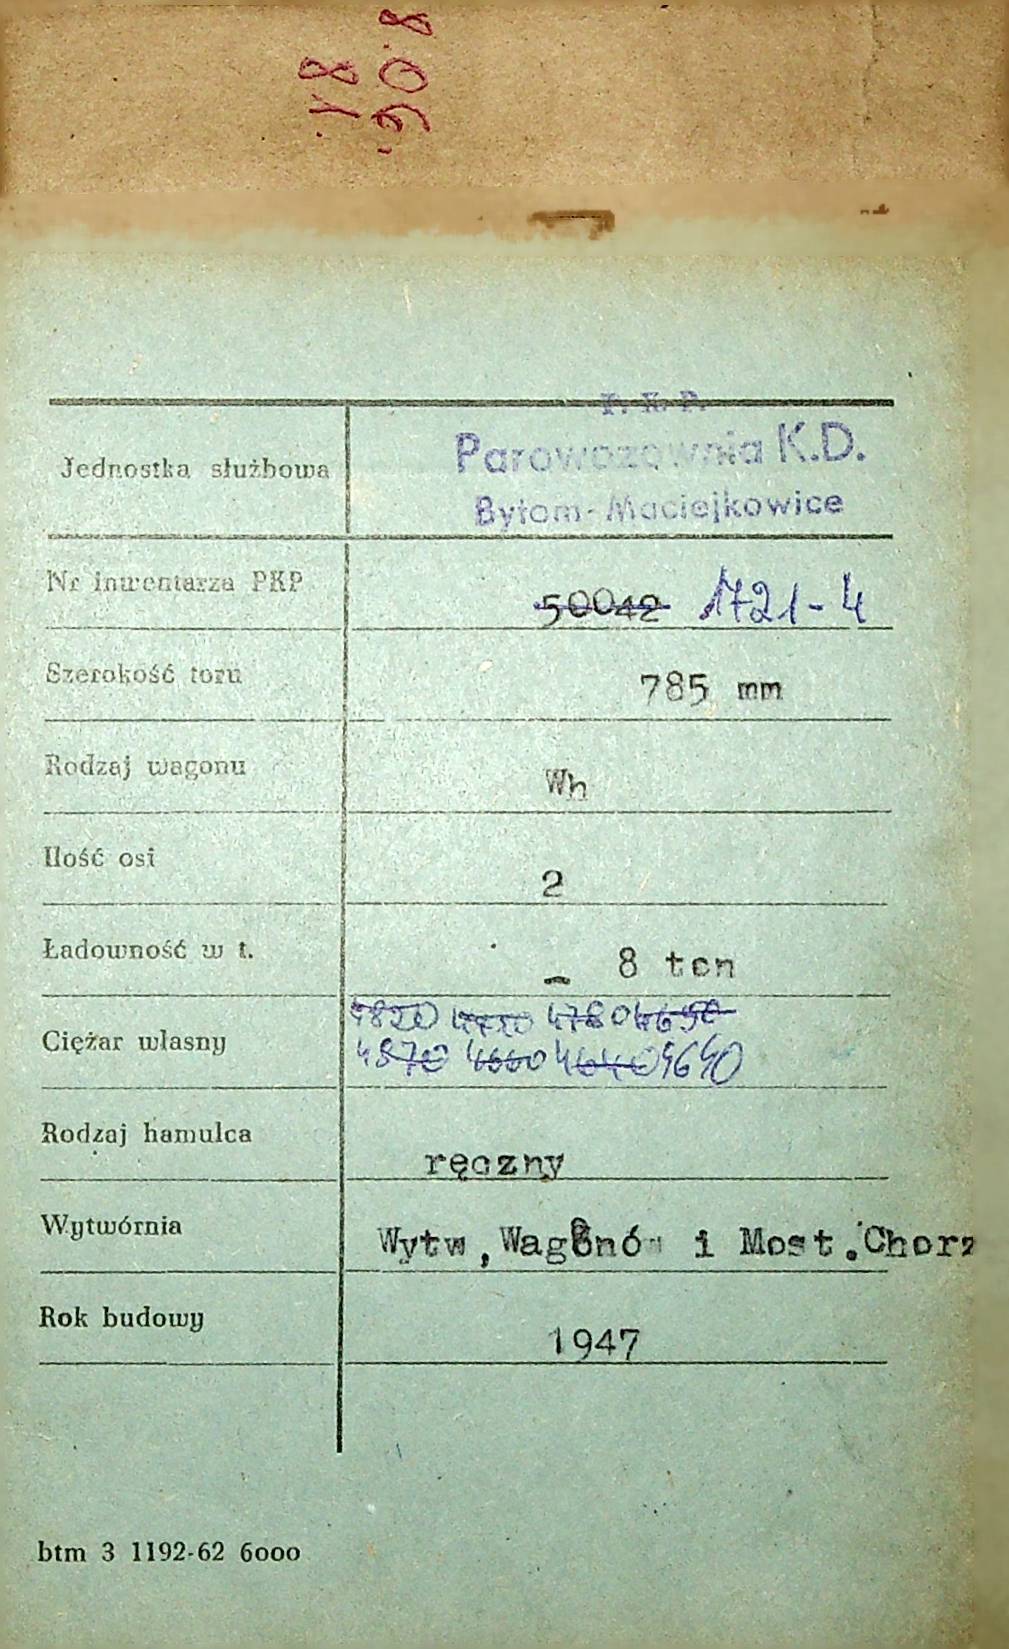 P. K. P.
Parowozownia K.D.
Bytom-Maciejkowice
Jednostka służbowa
Nr inwentarza PKP 50042 1721-4
Szerokość toru 785 mm
Rodzaj wagonu Wh
Ilość osi 2
Ładowność w t. 8 ton
4820 4780 4650
Ciężar własny
4870 4660 4640 4640
Rodzaj hamulca ręczny
Wytwórnia Wytw, Wagonów i Most. Chorz
Rok budowy 1947
btm 3 1192-62 6000